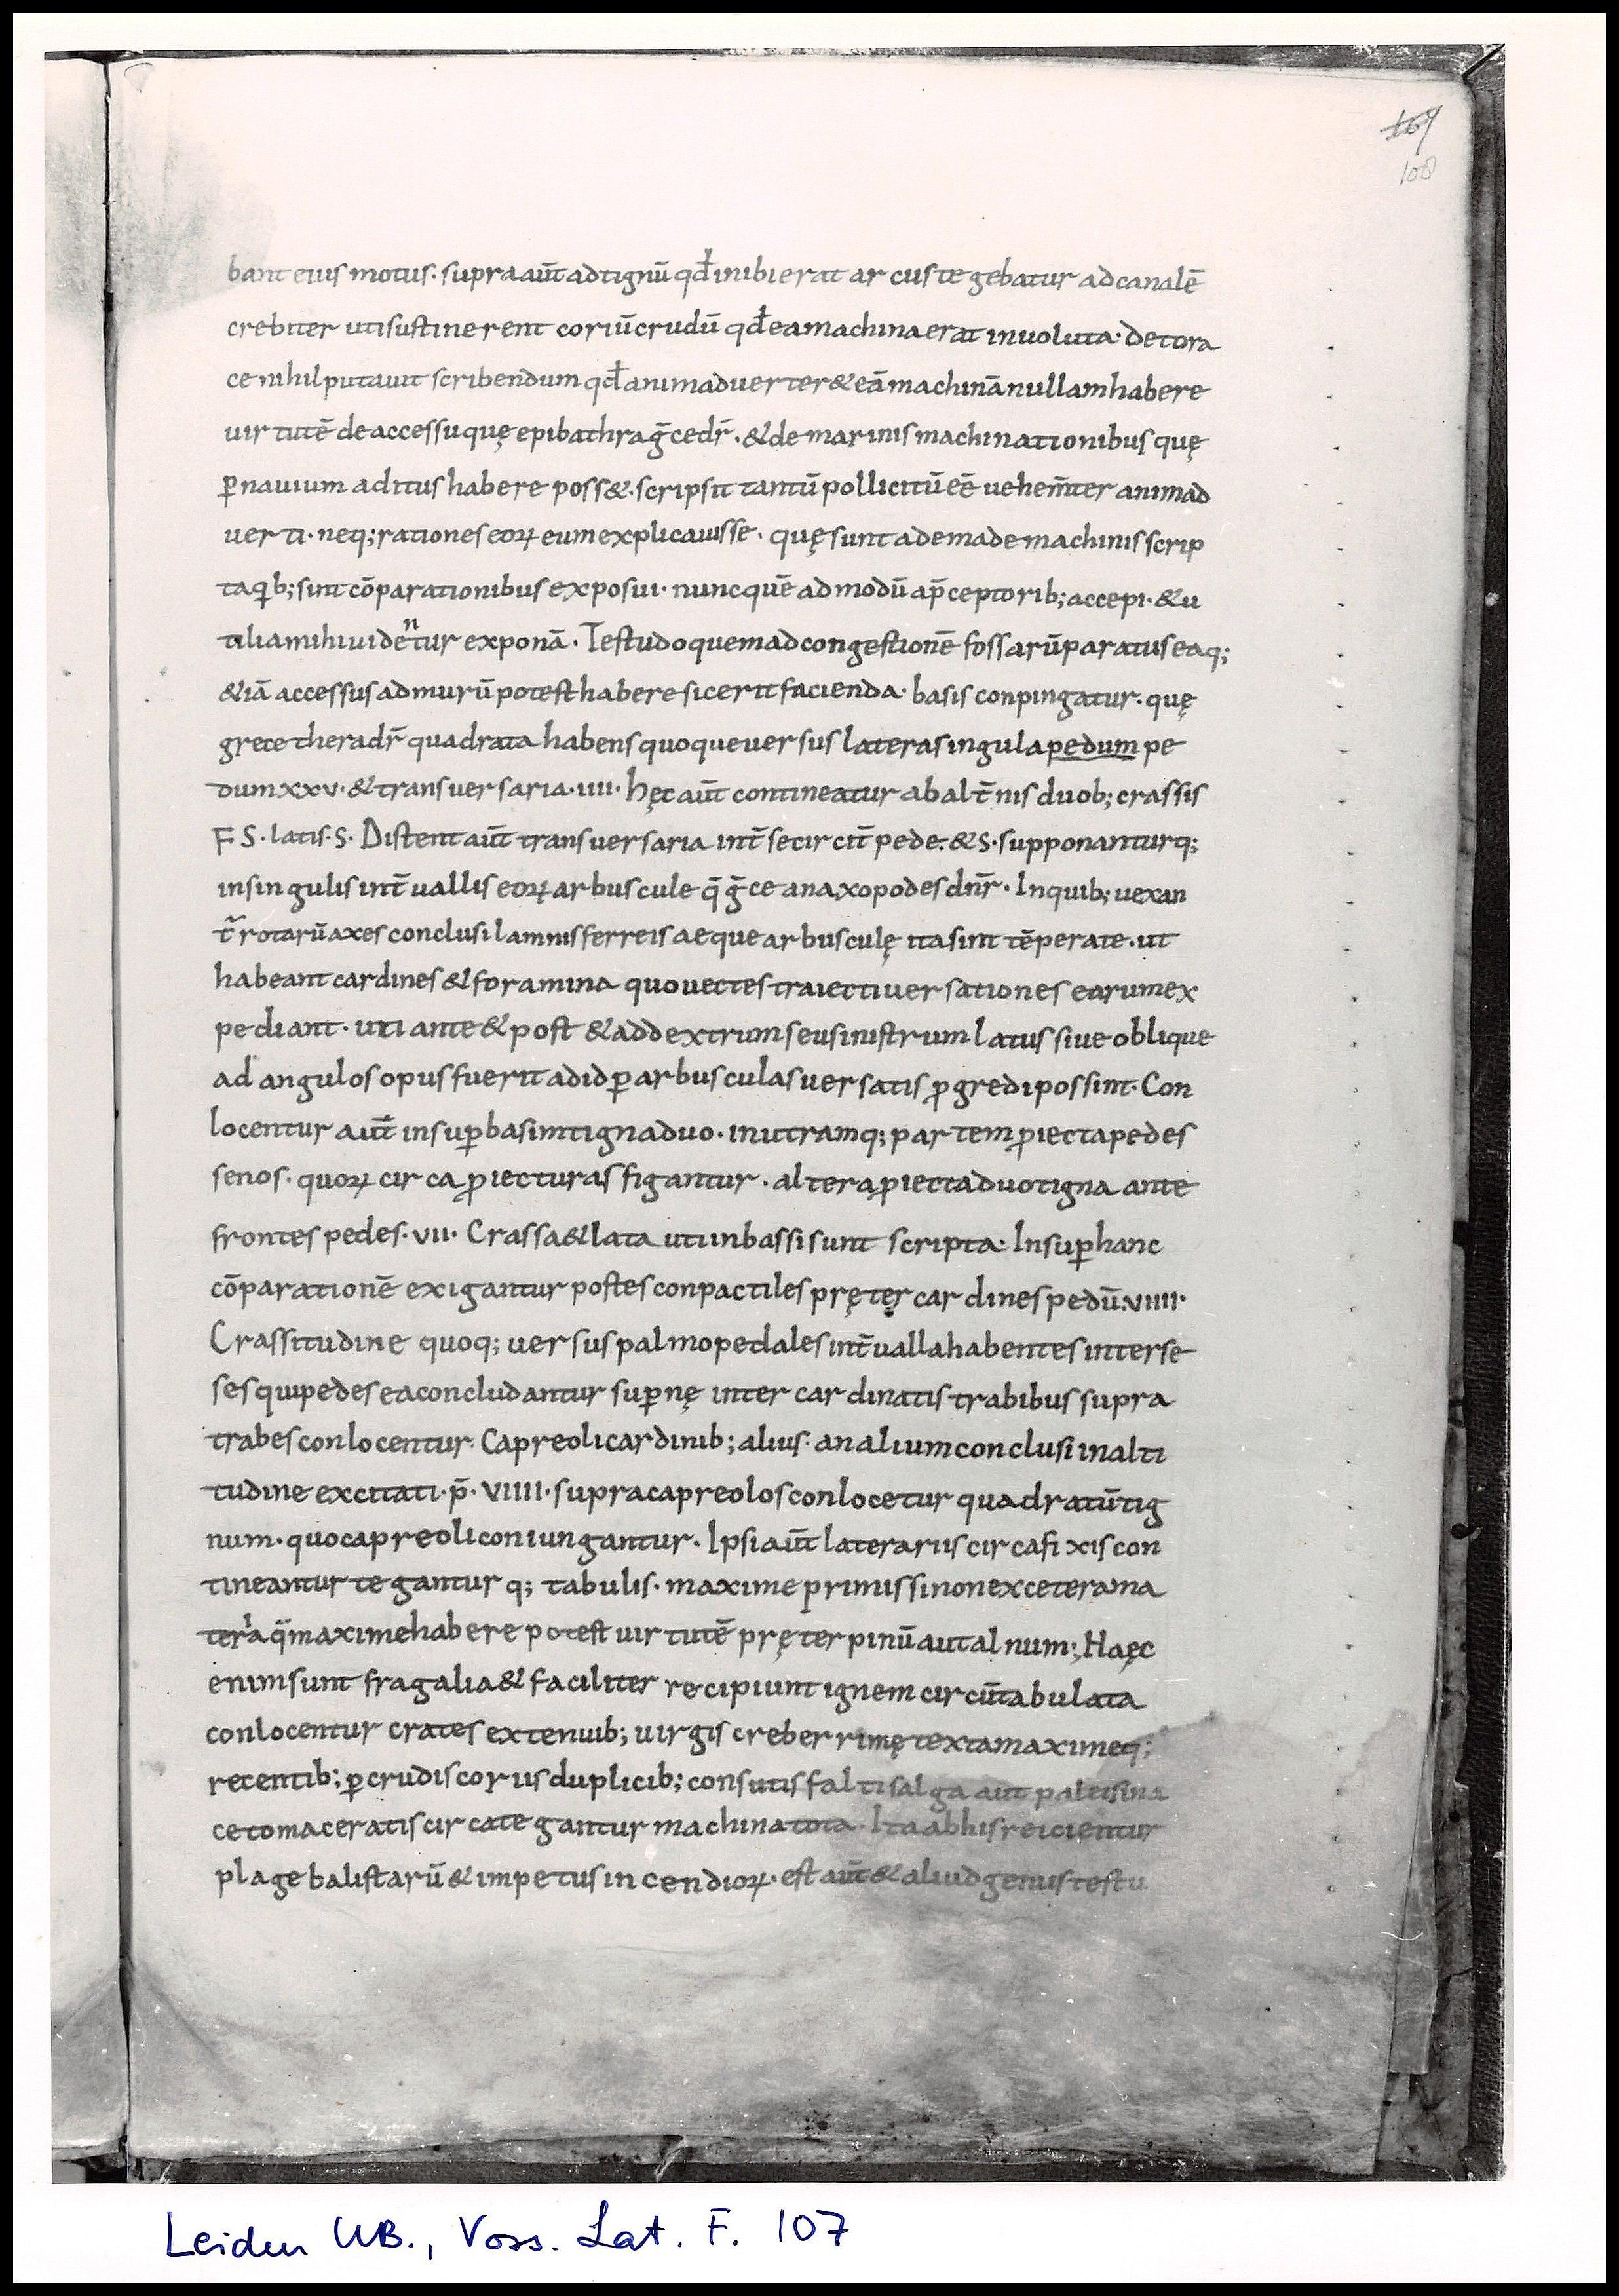 169
108
bant eius motus. supra aut̄ ad tignū qd̄ inibi erat arcus tegebatur ad canalē
crebriter uti sustinerent coriū crudū qd̄ ea machina erat inuoluta. De tora
ce nihil putauit scribendum qd̄ animaduerter& eā machinā nullam habere
uirtutē de accessu quę epibathra ḡ cedr̄. & de marinis machinationibus quę
p̄ nauium aditus habere poss&. scripsit tantū pollicitū eē uehem̄ter animad
uerti. neq; rationes eoꝝ eum explicauisse. quę sunt ademade machinis scrip
ta qib; sint cōparationibus exposui. nunc quē admodū a p̄ceptorib; accepi. & u
tilia mihi uidentur exponā. Testudo quem ad congestionē fossarū paratus eaq;
&iā accessus ad murū potest habere sic erit facienda. basis conpingatur. quę
grece theradr̄ quadrata habens quoque uersus latera singula pedum pe
dum xxv. & transuersaria. iiii. hęc aut̄ contineatur ab alt̄nis duob; crassis
F S. latis. S. Distent aut̄ transuersaria int̄ se circit̄ pede. & S. supponanturq;
in singulis int̄uallis eoꝝ arbuscule q̄ ḡce anaxopodes dn̄r. In quib; uexan
t̄r rotarū axes conclusi lamnis ferreis aeque arbusculę ita sint tēperate. ut
habeant cardines & foramina quo uectes traiecti uersationes earum ex
pediant. uti ante & post & ad dextrum seu sinistrum latus siue oblique
ad angulos opus fuerit ad id ꝑ arbusculas uersatis ꝓgredi possint. Con
locentur aut̄ insuꝑ basim tigna duo. in utramq; partem ꝓiecta pedes
senos. quoꝝ circa ꝓiecturas figantur. altera ꝓiecta duo tigna ante
frontes pedes. vii. Crassa & lata uti in bassi sunt scripta. Insuꝑ hanc
cōparationē exigantur postes conpactiles pręter cardines pedū. viiii.
Crassitudine quoq; uersus palmopedales int̄ualla habentes inter se
sesquipedes ea concludantur suꝑnę inter cardinatis trabibus supra
trabes conlocentur. Capreoli cardinib; alius. an alium conclusi in alti
tudine excitati. p̄. VIIII. supra capreolos conlocetur quadratū tig
num. quo capreoli coniungantur. Ipsi aut̄ laterariis circa fixis con
tineantur tegantur q; tabulis. maxime primis si non ex cetera ma
teria q̄ maxime habere potest uirtutē pręter pinū aut alnum; Haęc
enim sunt fragalia & faciliter recipiunt ignem circū tabulata
conlocentur crates ex tenuib; uirgis creberrimę texta maximeq;
recentib; ꝑ crudis coriis duplicib; consutis falti salga aut paleis in a
ceto maceratis circa tegantur machina tota. Ita ab his reicientur
plage balistarū & impetus incendioꝝ. est aut̄ & aliud genus testu
Leiden UB., Voss. Lat. F. 107